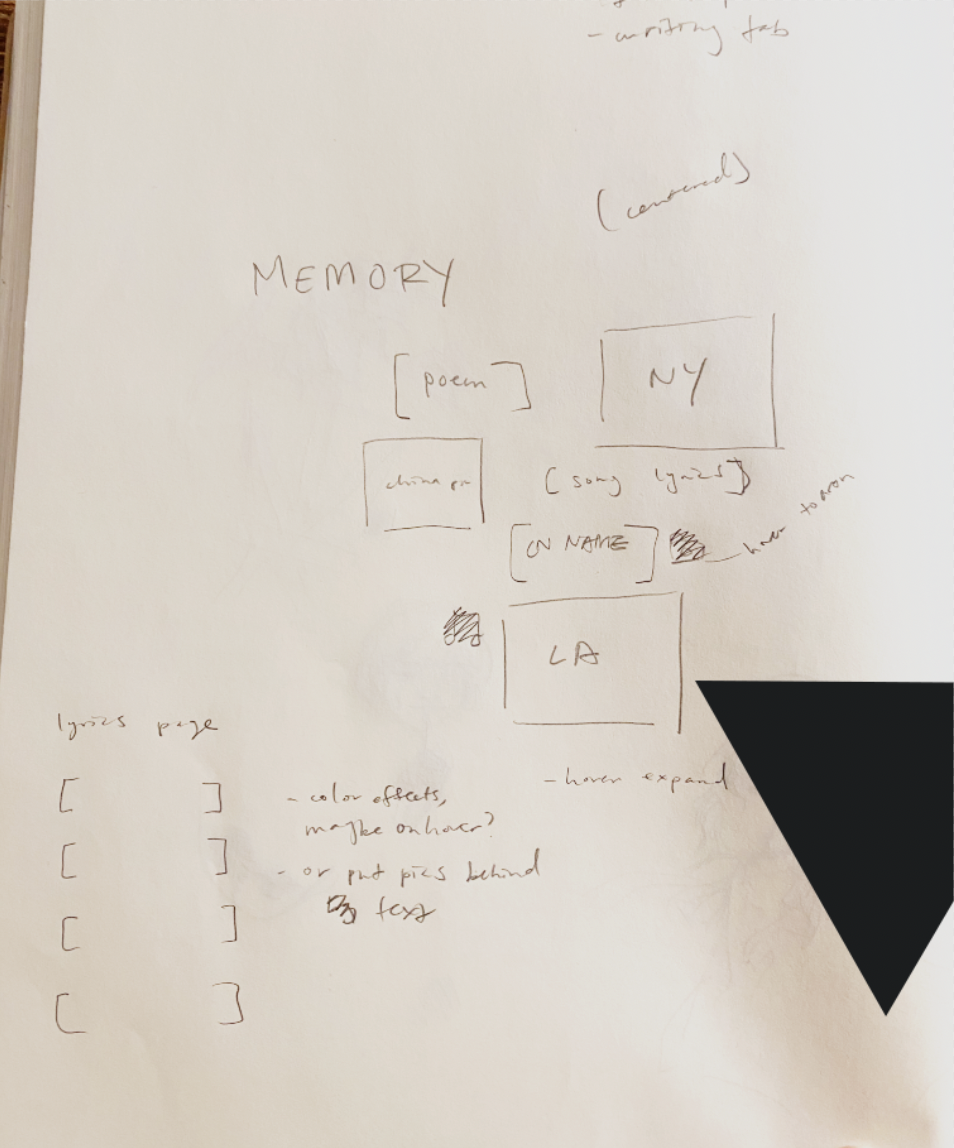 - writing tab
(centered)
MEMORY
[poem]
NY
china pic
[song lyrics]
[CN NAME]
hover to
LA
- hover expand
lyrics page
[ ]
[ ]
[ ]
[ ]
- color effects,
maybe on hover?
- or put pics behind
text